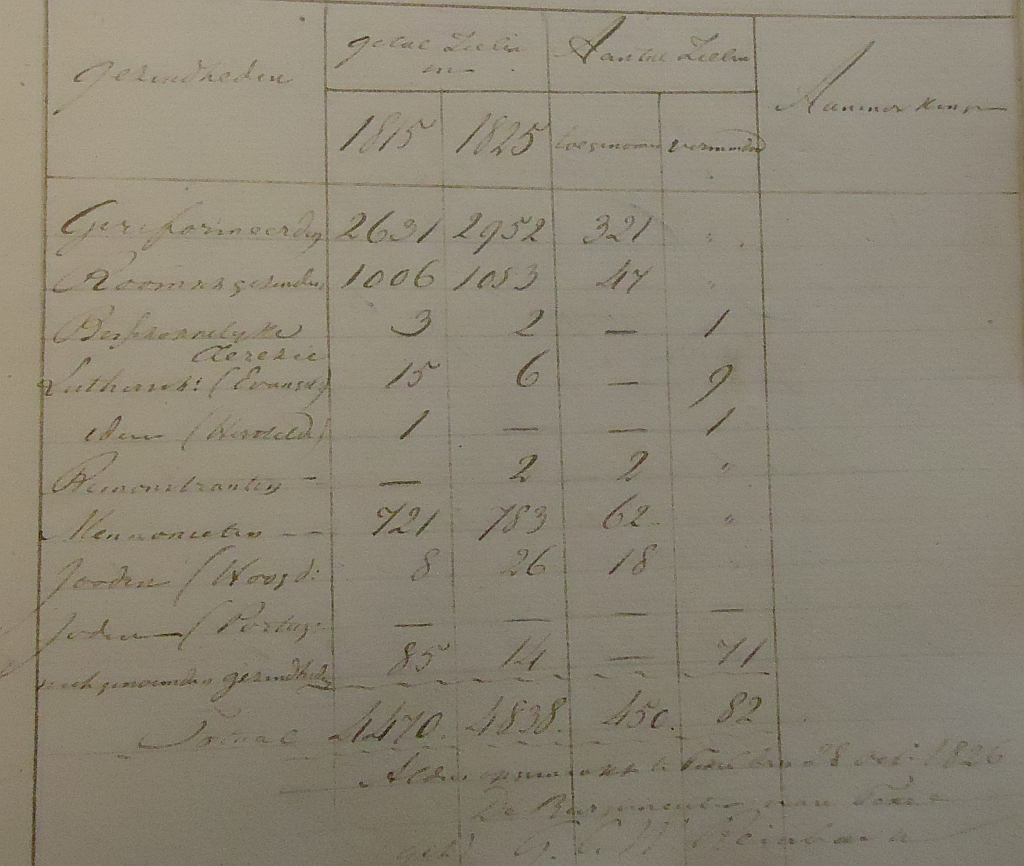 Gezindheden getal Zielen Aantal Zielen Aanmerking
in
1815 1825 toegenomen verminderd
Gereformeerden 2631 2952 321 "
Roomschgezinden 1006 1053 47 "
Bisschoppelyke 3 2 — 1
Cleresie
Luthersch: (Evangel) 15 6 — 9
idem (Hersteld) 1 — — 1
Remonstranten — — 2 2 "
Mennonieten — 721 783 62 "
Jooden (Hoogd: 8 26 18
Joden (Portug: — — — —
niet genoemden gezindheden 85 14 — 71
Totaal 4470. 4838. 450. 82
Aldus opgemaakt te Texel den 28 oct: 1826
De Burgemeester van Texel
get: